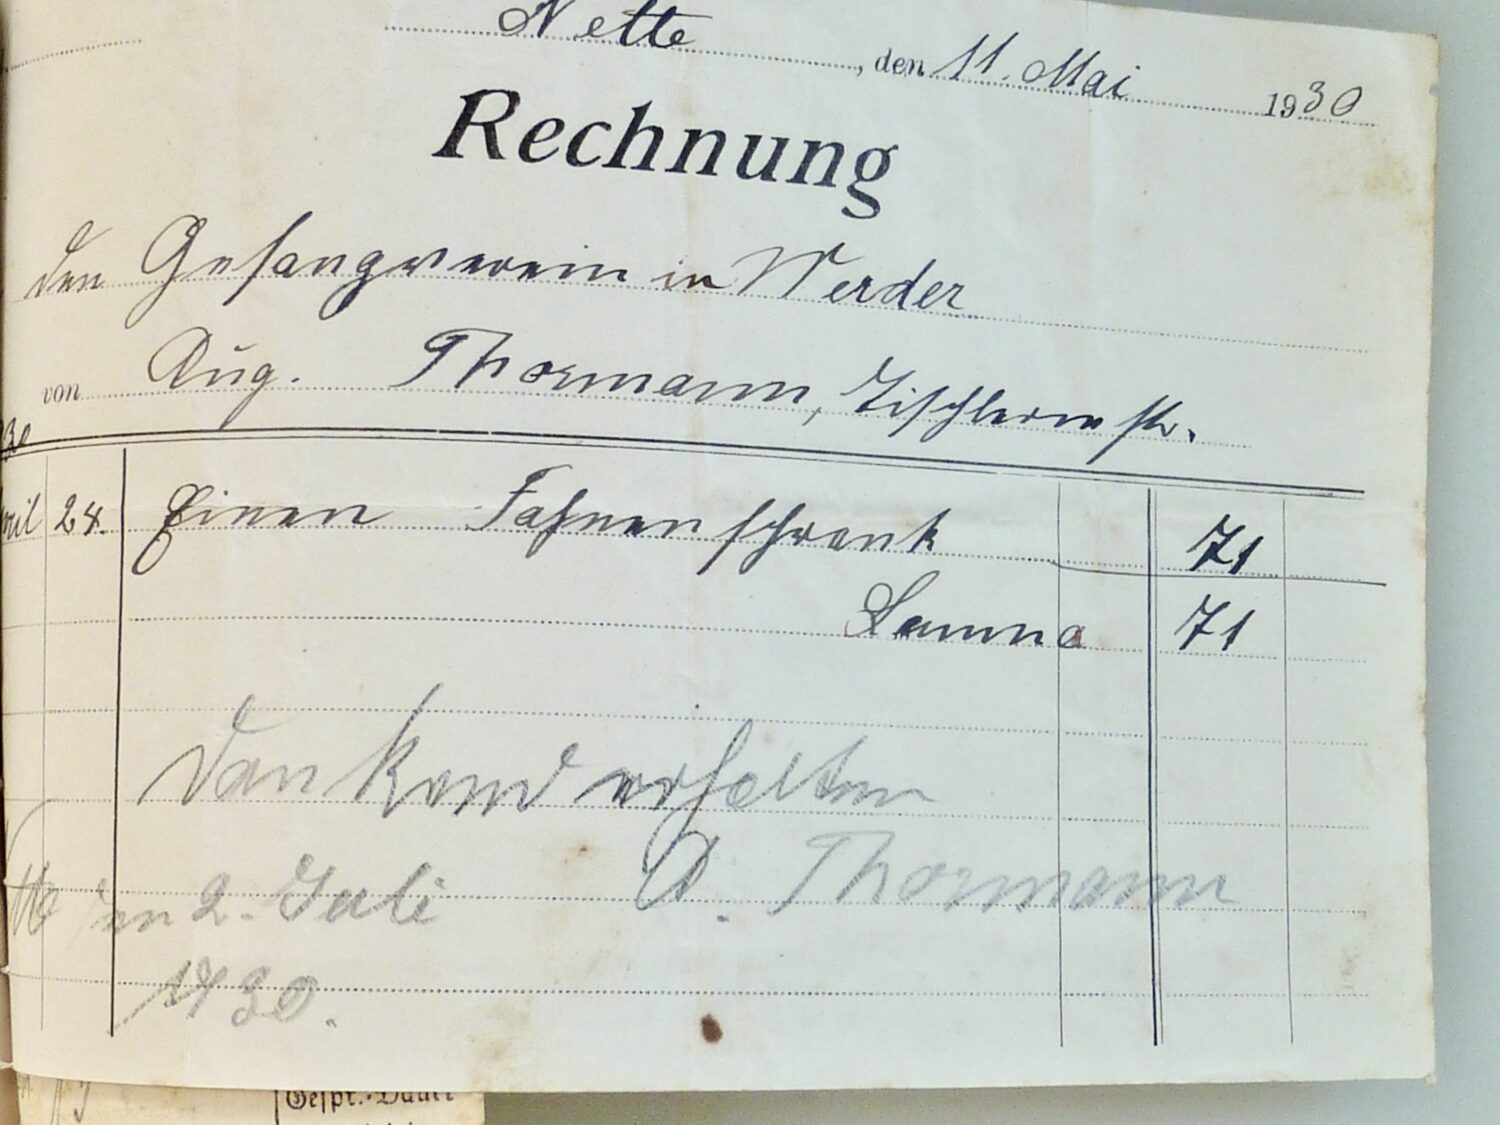 Nette, den 11. Mai 1930
Rechnung
den Gesangverein in Werder
von Aug. Thormann, Tischlermstr.
30
ril 28. Einen Fahnenschrank 71
Summa 71
Dankend erhalten
tte 2. Juli A. Thormann
1930.
Gespr.-Dauer